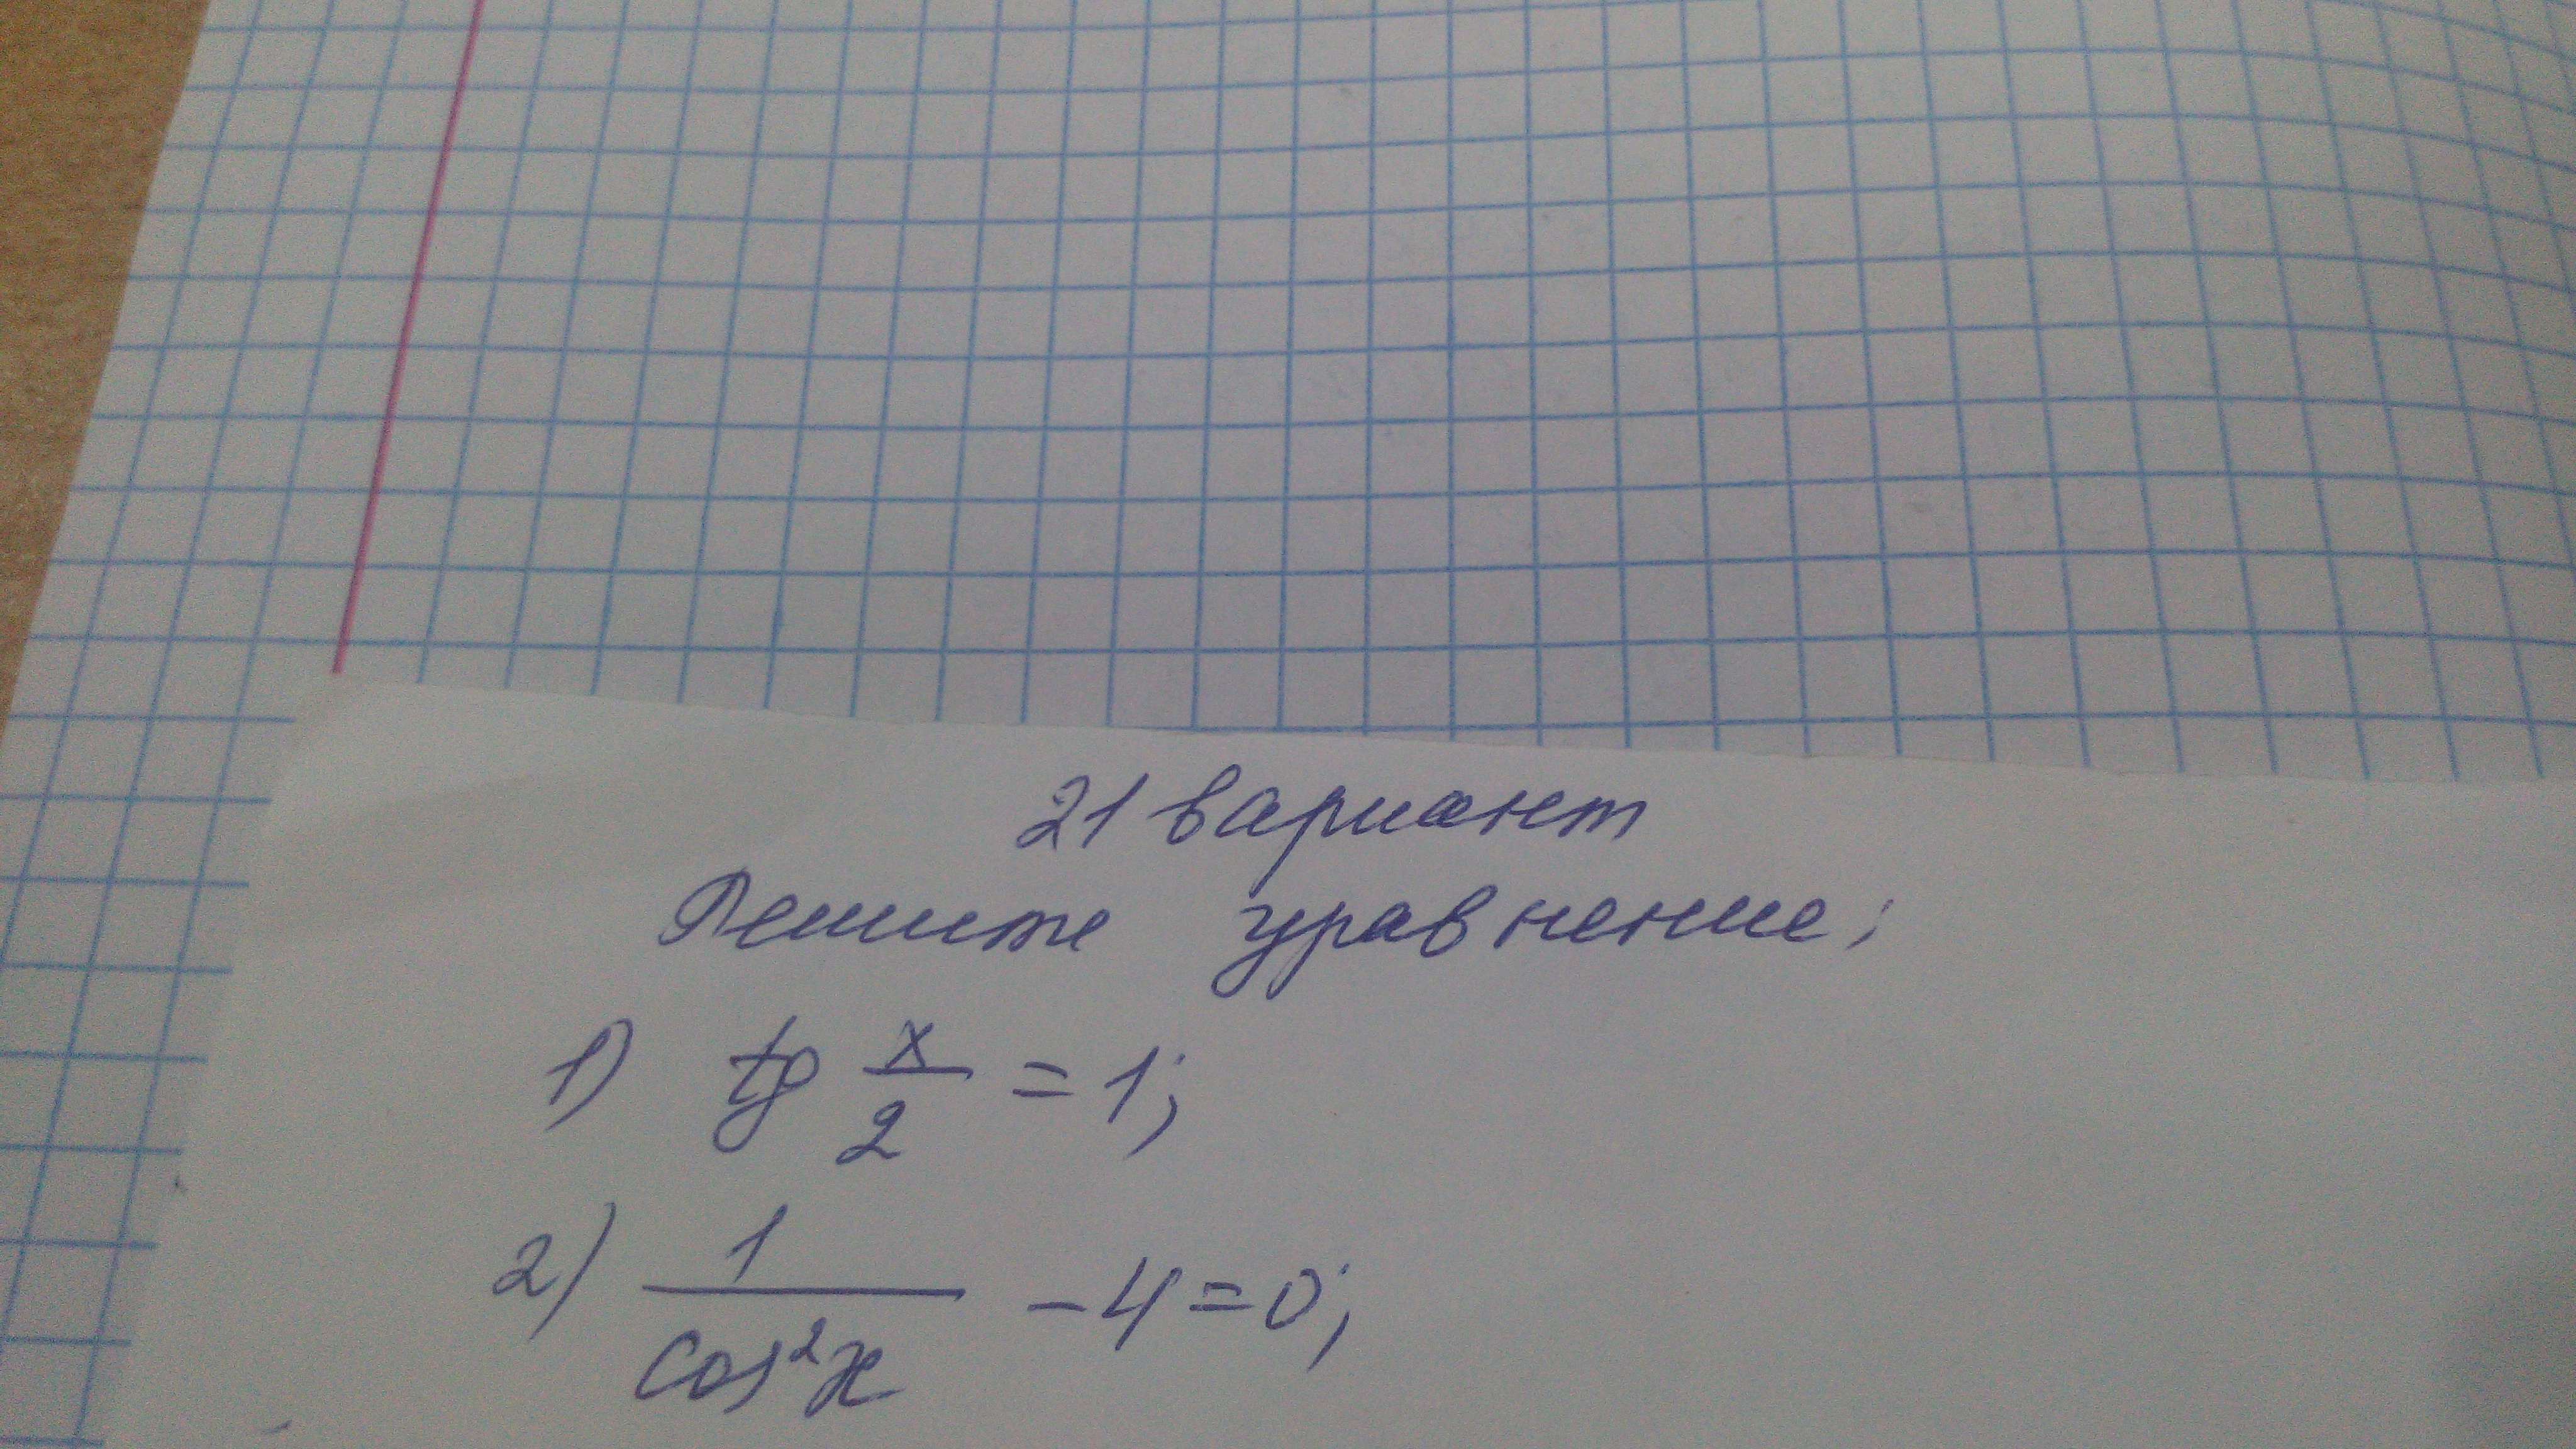 21 вариант
Решите уравнение;
1) tg x/2 = 1;
2) 1/cos²x - 4 = 0;